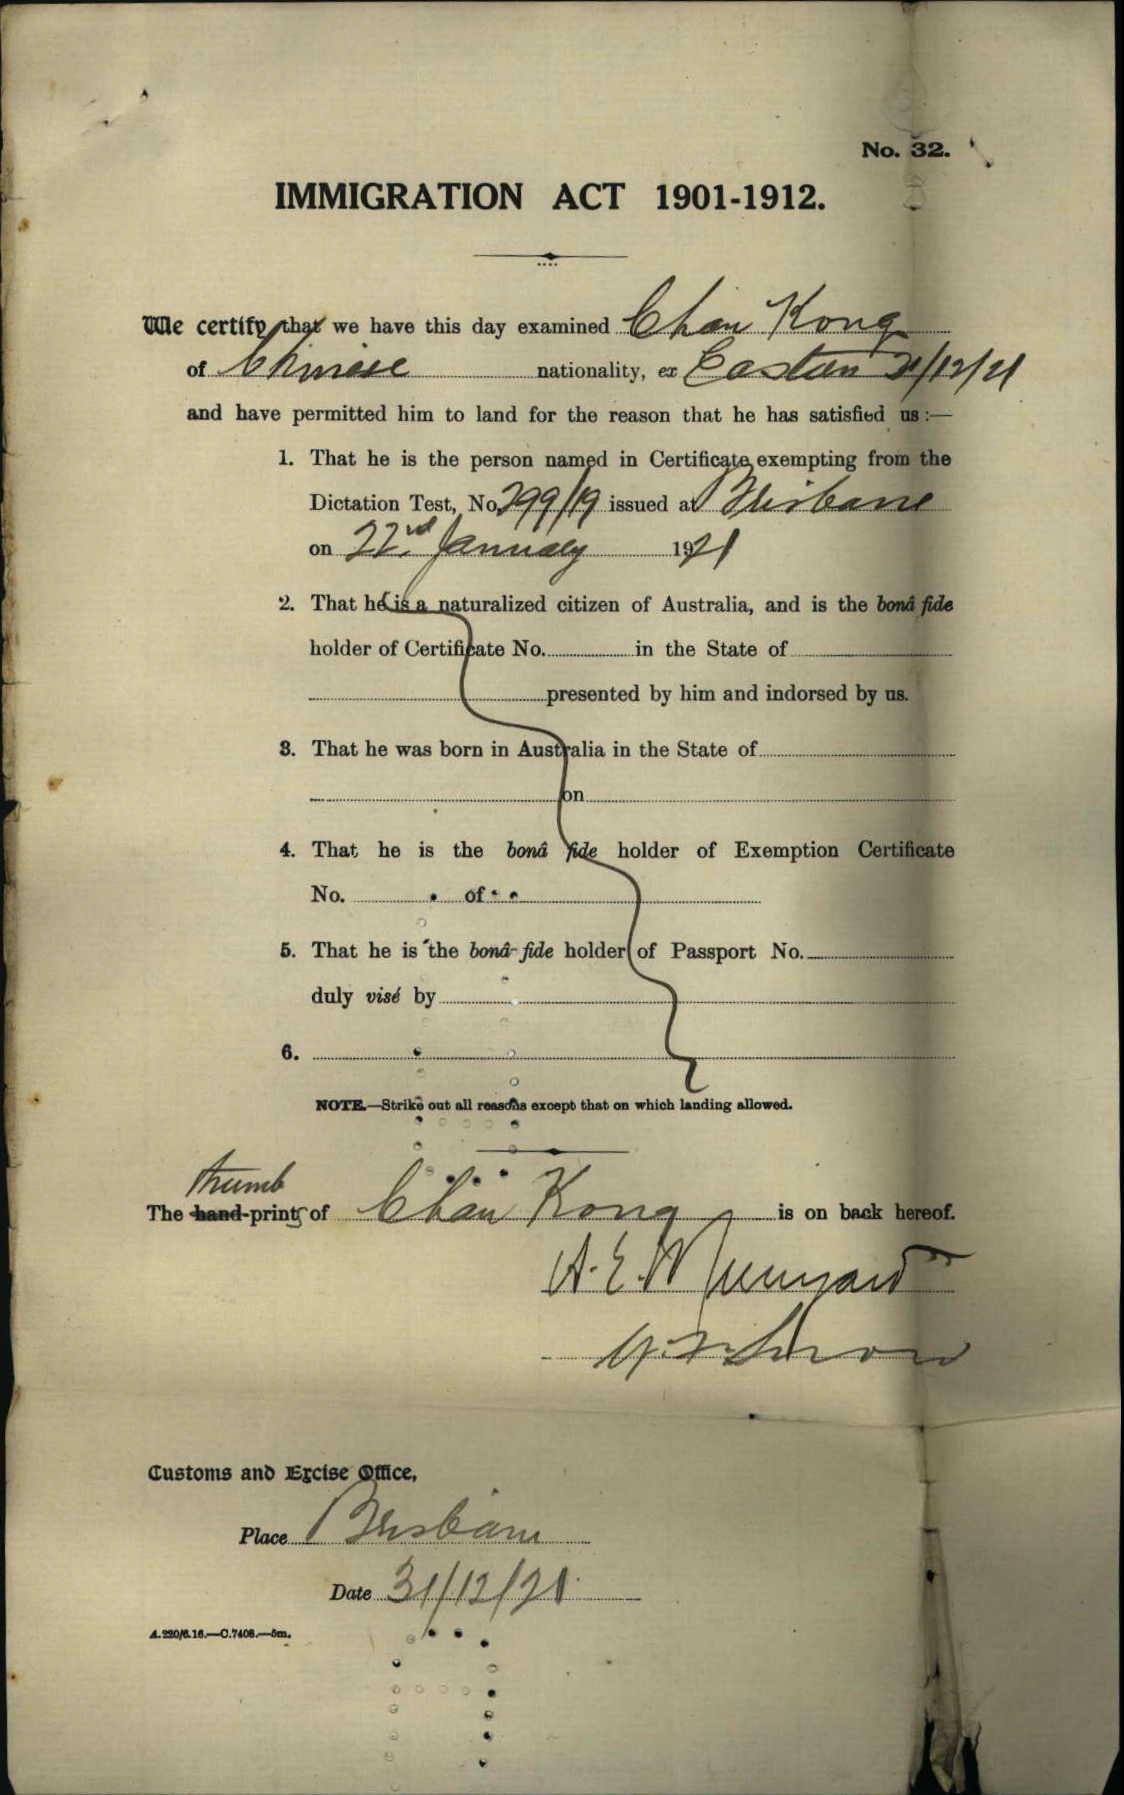 No. 32.
IMMIGRATION ACT 1901-1912.
We certify that we have this day examined Chan Kong
of Chinese nationality, ex Eastern 31/12/21
and have permitted him to land for the reason that he has satisfied us :—
1. That he is the person named in Certificate exempting from the
Dictation Test, No. 299/19 issued at Brisbane
on 22nd January 1921
2. That he is a naturalized citizen of Australia, and is the bonâ fide
holder of Certificate No. in the State of
presented by him and indorsed by us.
3. That he was born in Australia in the State of
on
4. That he is the bonâ fide holder of Exemption Certificate
No. of
5. That he is the bonâ fide holder of Passport No.
duly visé by
6.
NOTE.—Strike out all reasons except that on which landing allowed.
thumb
The hand-prints of Chan Kong is on back hereof.
A. E.
Customs and Excise Office,
Place Brisbane
Date 31/12/21
A.220/6.16.—C.7408.—5m.